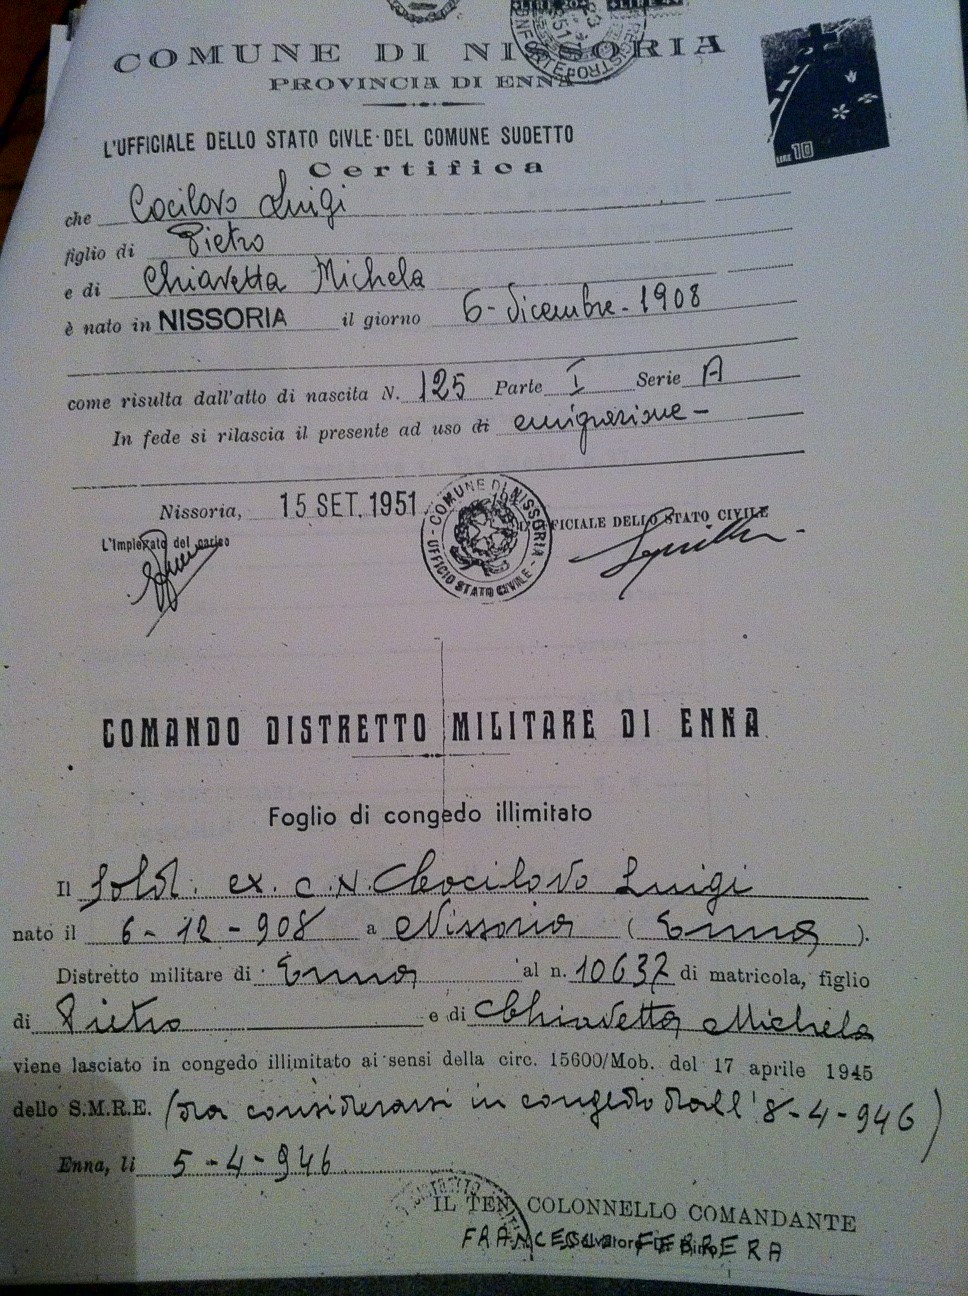 COMUNE DI NISSORIA
PROVINCIA DI ENNA
LIRE 10
L'UFFICIALE DELLO STATO CIVLE DEL COMUNE SUDETTO
Certifica
che Cocilovo Luigi
figlio di Pietro
e di Chiavetta Michela
è nato in NISSORIA il giorno 6-dicembre-1908
come risulta dall'atto di nascita N. 125 Parte I Serie A
In fede si rilascia il presente ad uso di emigrazione-
Nissoria, 15 SET. 1951
COMUNE DI NISSORIA - UFFICIO STATO CIVILE -
UFFICIALE DELLO STATO CIVILE
L'Impiegato del carico
COMANDO DISTRETTO MILITARE DI ENNA
Foglio di congedo illimitato
Il Sold. ex. C.N. Cocilovo Luigi
nato il 6-12-908 a Nissoria (Enna).
Distretto militare di Enna al n. 10637 di matricola, figlio
di Pietro e di Chiavetta Michela
viene lasciato in congedo illimitato ai sensi della circ. 15600/Mob. del 17 aprile 1945
dello S.M.R.E. (da considerarsi in congedo dall'8-4-946)
Enna, li 5-4-946
DISTRETTO
IL TEN. COLONNELLO COMANDANTE
FRANCESCO FERRERA